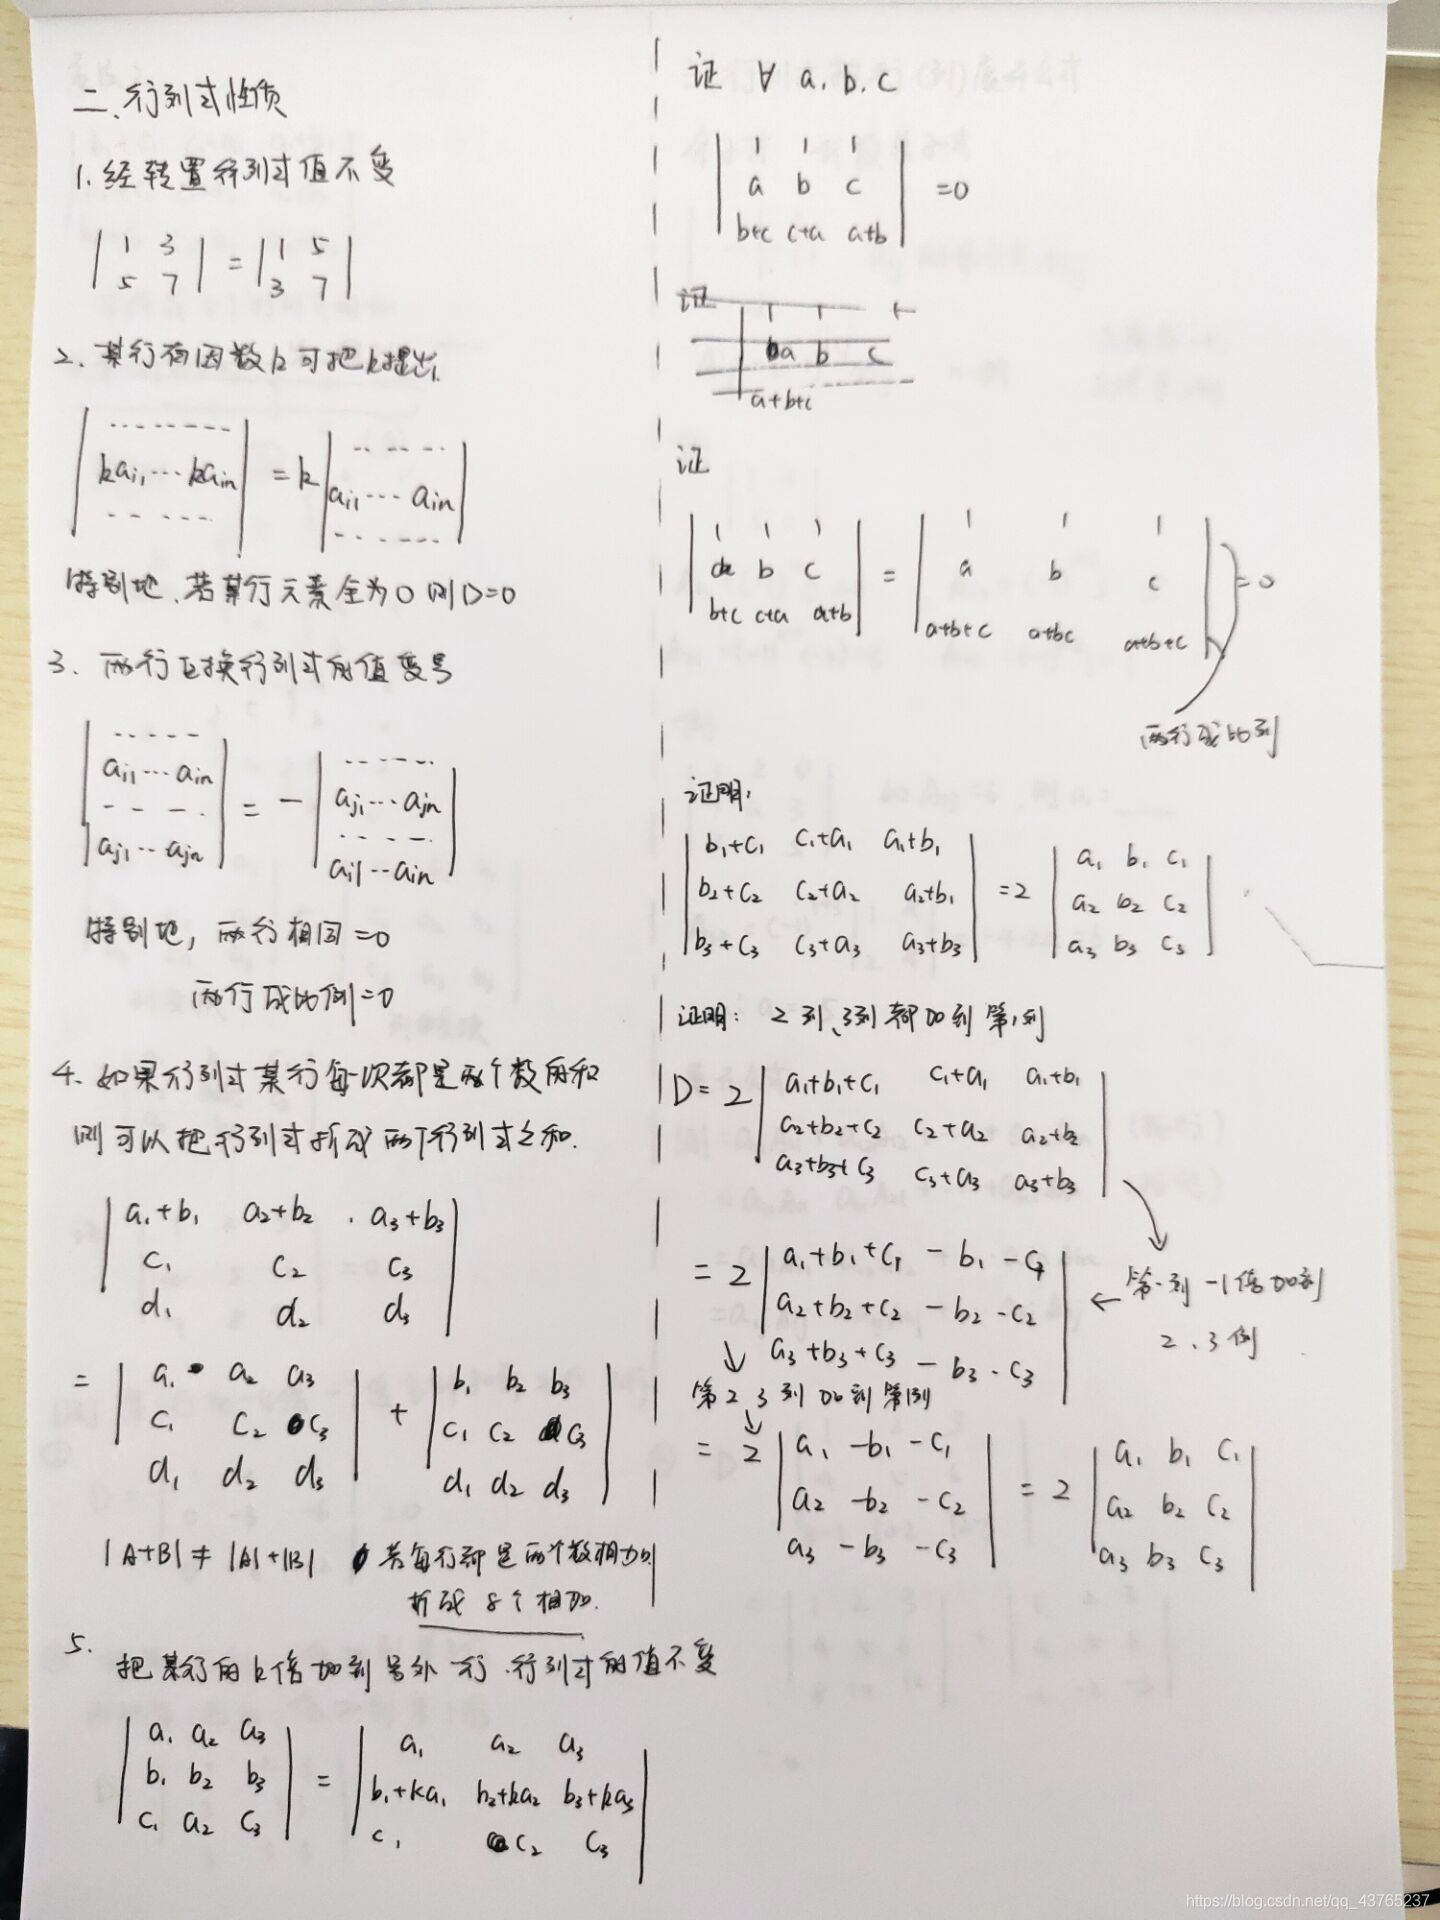 二、行列式性质
1. 经转置行列式值不变
| 1 3 |
| 5 7 | = | 1 5 |
| 3 7 |
2. 某行有因数k可把k提出
| -------- |
| kai1 ... kain | = k | ai1 ... ain |
| -------- |
特别地、若某行元素全为0则D=0
3. 两行互换行列式的值变号
| ai1 ... ain |
| aj1 ... ajn | = - | aj1 ... ajn |
| ai1 ... ain |
特别地，两行相同=0
两行成比例=0
4. 如果行列式某行每一次都是两个数的和
则可以把行列式拆成两个行列式之和.
| a1+b1 a2+b2 . a3+b3 |
| c1 c2 c3 |
| d1 d2 d3 |
= | a1 a2 a3 | + | b1 b2 b3 |
| c1 c2 c3 | | c1 c2 c3 |
| d1 d2 d3 | | d1 d2 d3 |
|A+B| ≠ |A|+|B| 若每行都是两个数相加
拆成8个相加.
5. 把某行的k倍加到另外一行.行列式的值不变
| a1 a2 a3 | = | a1 a2 a3 |
| b1 b2 b3 | | b1+ka1 b2+ka2 b3+ka3 |
| c1 a2 c3 | | c1 c2 c3 |
证 ∀ a, b, c
| 1 1 1 |
| a b c | =0
| b+c c+a a+b |
证
1 1 1
a b c
a+b+c
证
| 1 1 1 | = | 1 1 1 | =0
| a b c | | a b c |
| b+c c+a a+b | | a+b+c a+bc a+b+c |
两行成比列
证明:
| b1+c1 c1+a1 a1+b1 | | a1 b1 c1 |
| b2+c2 c2+a2 a2+b1 | =2 | a2 b2 c2 |
| b3+c3 c3+a3 a3+b3 | | a3 b3 c3 |
证明: 2列、3列都加到第1列
D= 2 | a1+b1+c1 c1+a1 a1+b1 |
| a2+b2+c2 c2+a2 a2+b2 |
| a3+b3+c3 c3+a3 a3+b3 |
= 2 | a1+b1+c1 -b1 -c1 |
| a2+b2+c2 -b2 -c2 | ← 第一列 -1倍加到
| a3+b3+c3 -b3 -c3 | 2、3例
第2、3列加到第1列
= 2 | a1 -b1 -c1 | = 2 | a1 b1 c1 |
| a2 -b2 -c2 | | a2 b2 c2 |
| a3 -b3 -c3 | | a3 b3 c3 |
https://blog.csdn.net/qq_43765237